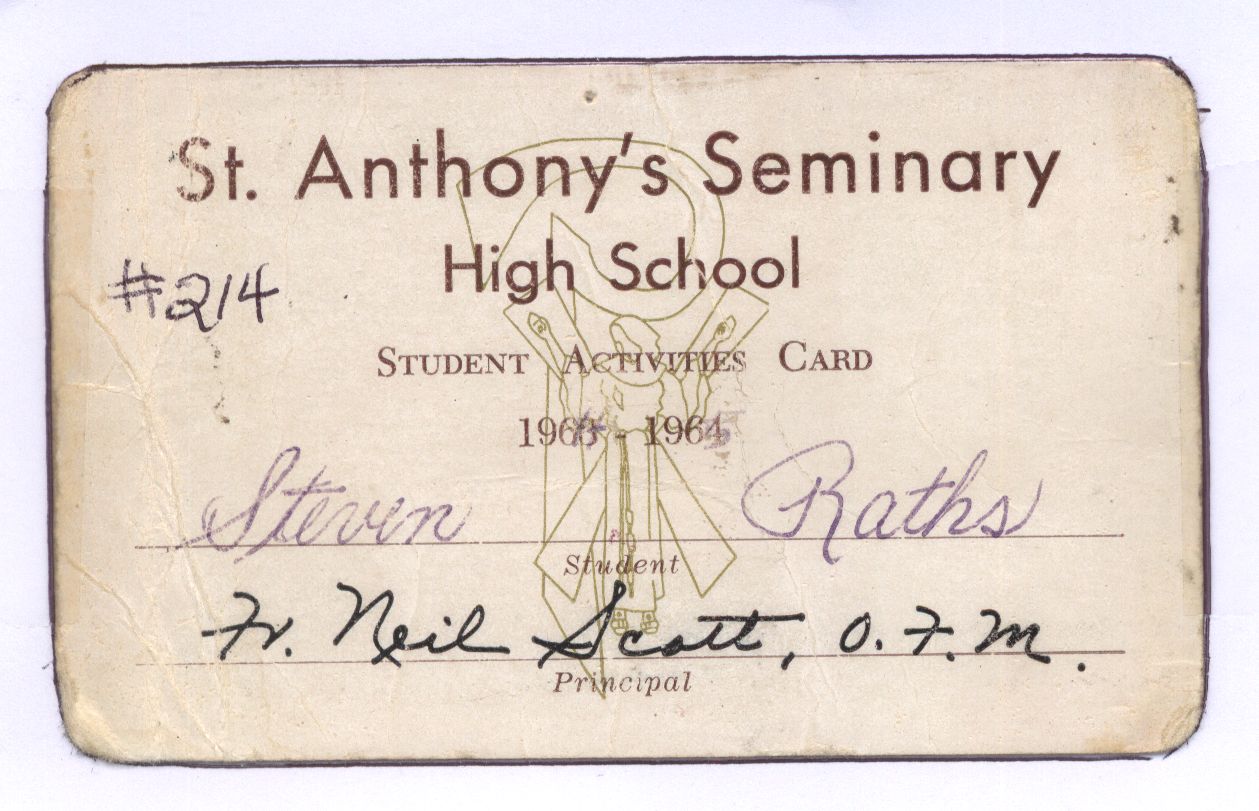 St. Anthony's Seminary
High School
#214
STUDENT ACTIVITIES CARD
1964 - 1965
Steven Raths
Student
Fr. Neil Scott, O.F.M.
Principal